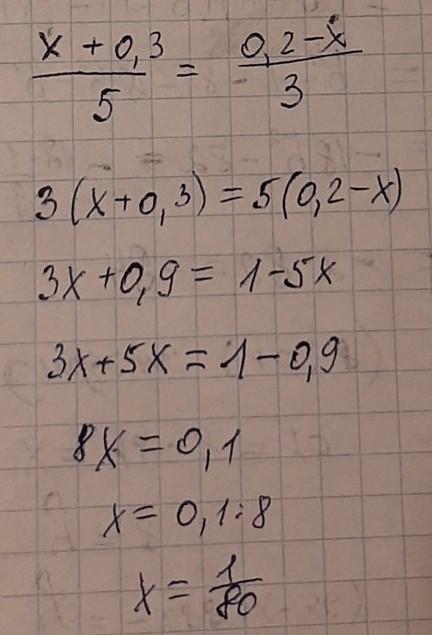 (x + 0,3)/5 = (0,2 - x)/3
3(x+0,3) = 5(0,2-x)
3x+0,9 = 1-5x
3x+5x = 1-0,9
8x = 0,1
x = 0,1:8
x = 1/80